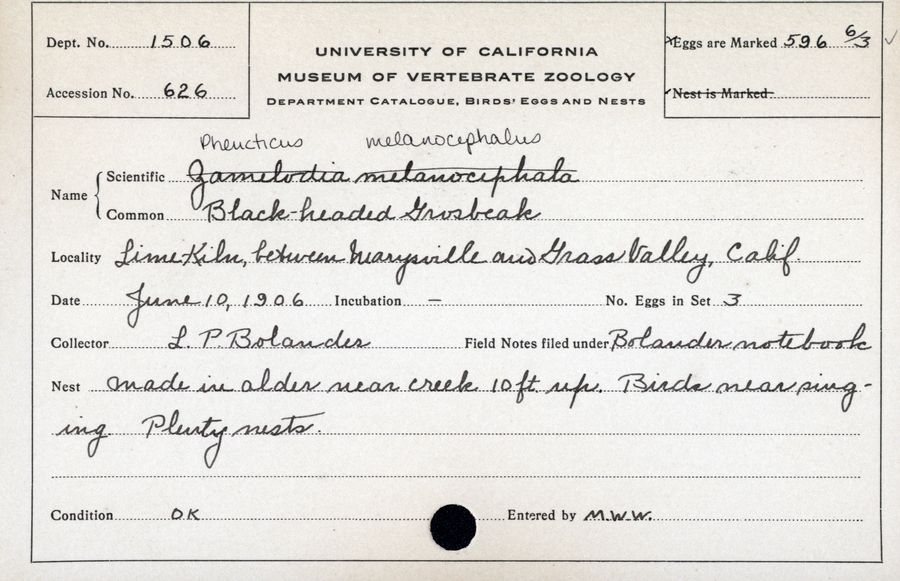 Dept. No. 1506
Accession No. 626
UNIVERSITY OF CALIFORNIA
MUSEUM OF VERTEBRATE ZOOLOGY
DEPARTMENT CATALOGUE, BIRDS' EGGS AND NESTS
Eggs are Marked 596 6/3 ✓
Nest is Marked
Pheucticus melanocephalus
Name Scientific Zamelodia melanocephala
Common Black-headed Grosbeak
Locality Lime Kiln, between Marysville and Grass Valley, Calif.
Date June 10, 1906 Incubation — No. Eggs in Set 3
Collector L. P. Bolander Field Notes filed under Bolander notebook
Nest made in alder near creek 10 ft up. Birds near sing-
ing Plenty nests.
Condition OK Entered by M.W.W.